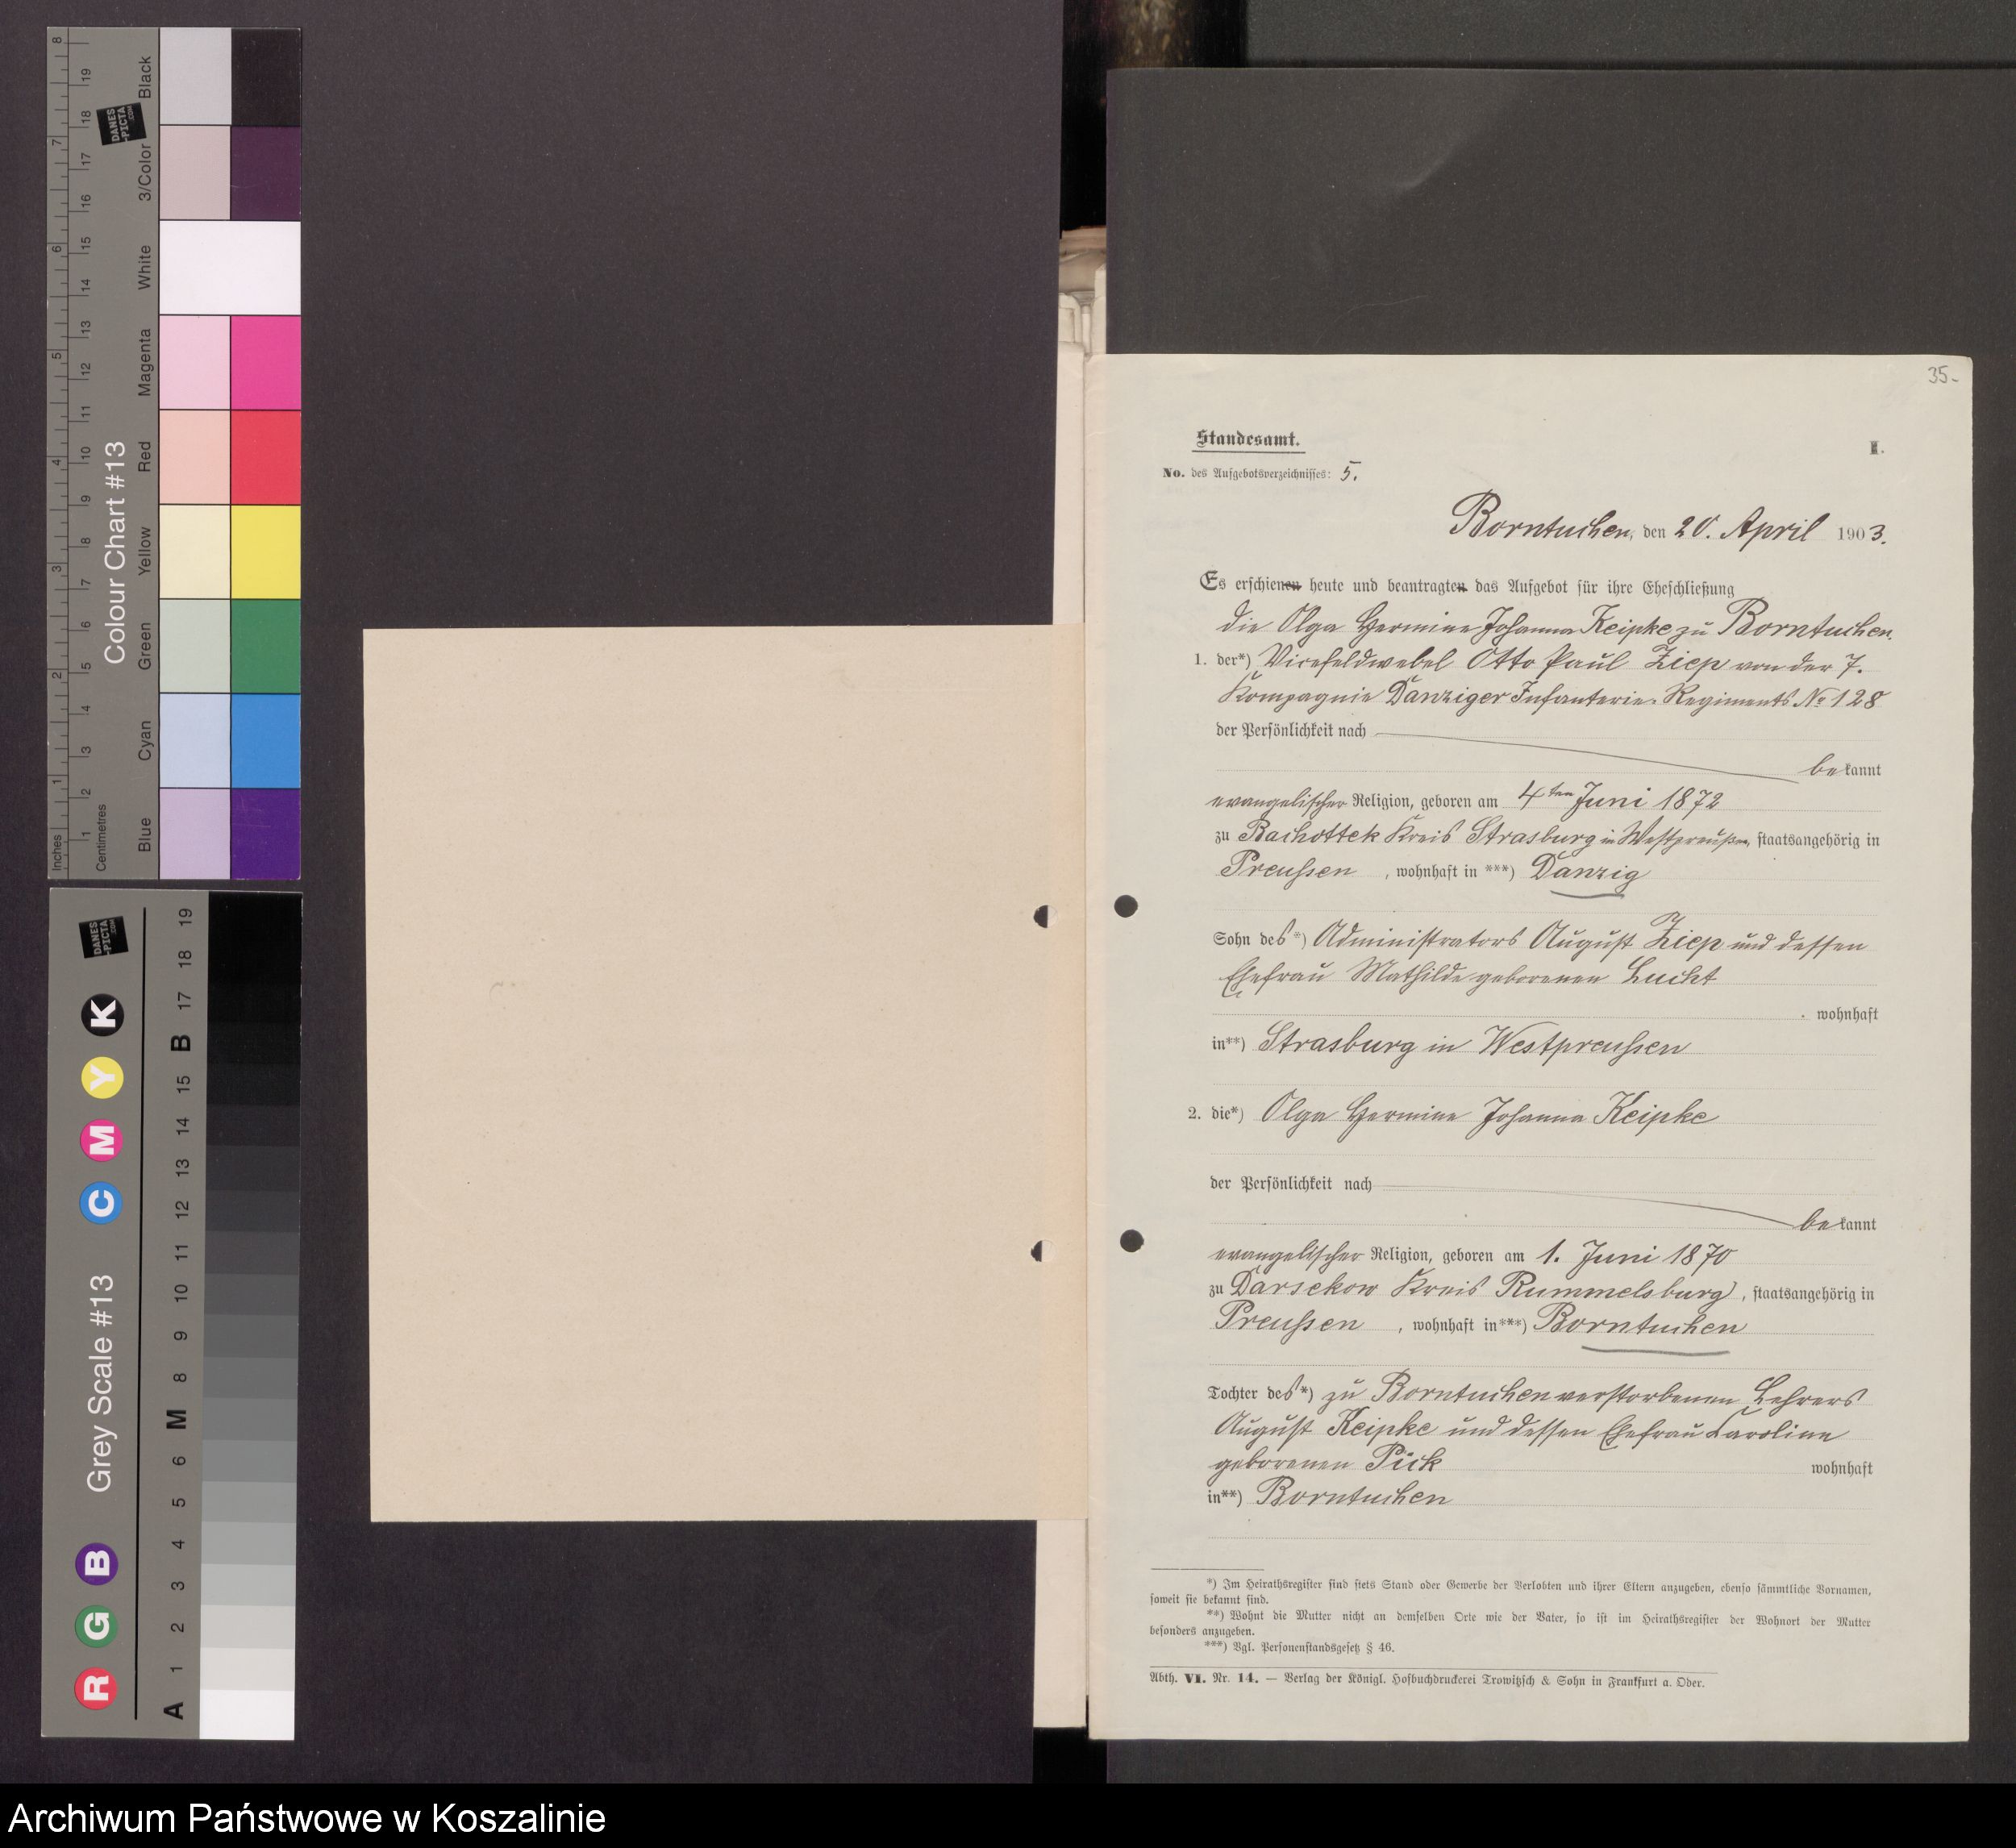 8 7 6 5 4 3 2 1 Inches
19 18 17 16 15 14 13 12 11 10 9 8 7 6 5 4 3 2 1 Centimetres
Colour Chart #13
DANES
-PICTA
.COM
Black
3/Color
White
Magenta
Red
Yellow
Green
Cyan
Blue
Grey Scale #13
DANES
-PICTA
.COM
R G B C M Y K
A 1 2 3 4 5 6 M 8 9 10 11 12 13 14 15 B 17 18 19
35-
Standesamt.
I.
No. des Aufgebotsverzeichnisses: 5.
Borntuchen, den 20. April 1903.
Es erschienen heute und beantragten das Aufgebot für ihre Eheschließung
die Olga Hermine Johanna Keipke zu Borntuchen.
1. der*) Vicefeldwebel Otto Paul Ziep von der 7.
Kompagnie Danziger Infanterie-Regiments No 128
der Persönlichkeit nach
bekannt
evangelischer Religion, geboren am 4ten Juni 1872
zu Bachottek Kreis Strasburg in Westpreußen, staatsangehörig in
Preussen, wohnhaft in ***) Danzig
Sohn des*) Administrators August Ziep und dessen
Ehefrau Mathilde geborenen Lucht
. wohnhaft
in**) Strasburg in Westpreussen
2. die*) Olga Hermine Johanna Keipke
der Persönlichkeit nach
bekannt
evangelischer Religion, geboren am 1. Juni 1870
zu Darsekow Kreis Rummelsburg, staatsangehörig in
Preussen, wohnhaft in***) Borntuchen
Tochter des*) zu Borntuchen verstorbenen Lehrers
August Keipke und dessen Ehefrau Caroline
geborenen Pick wohnhaft
in**) Borntuchen
*) Im Heirathsregister sind stets Stand oder Gewerbe der Verlobten und ihrer Eltern anzugeben, ebenso sämmtliche Vornamen,
soweit sie bekannt sind.
**) Wohnt die Mutter nicht an demselben Orte wie der Vater, so ist im Heirathsregister der Wohnort der Mutter
besonders anzugeben.
***) Vgl. Personenstandsgesetz § 46.
Abth. VI. Nr. 14. — Verlag der Königl. Hofbuchdruckerei Trowitzsch & Sohn in Frankfurt a. Oder.
Archiwum Państwowe w Koszalinie